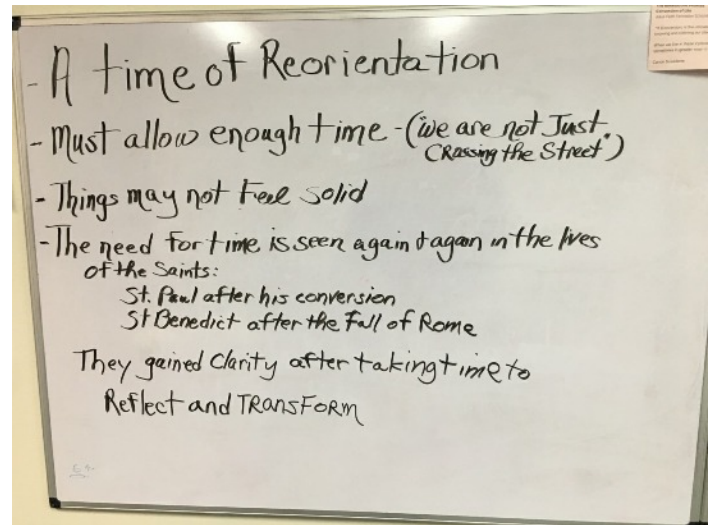 - A time of Reorientation
- Must allow enough time - ("we are not Just
Crossing the Street")
- Things may not Feel solid
- The need for time is seen again & again in the lives
of the Saints:
St. Paul after his conversion
St Benedict after the Fall of Rome
They gained Clarity after taking time to
Reflect and TRANSFORM